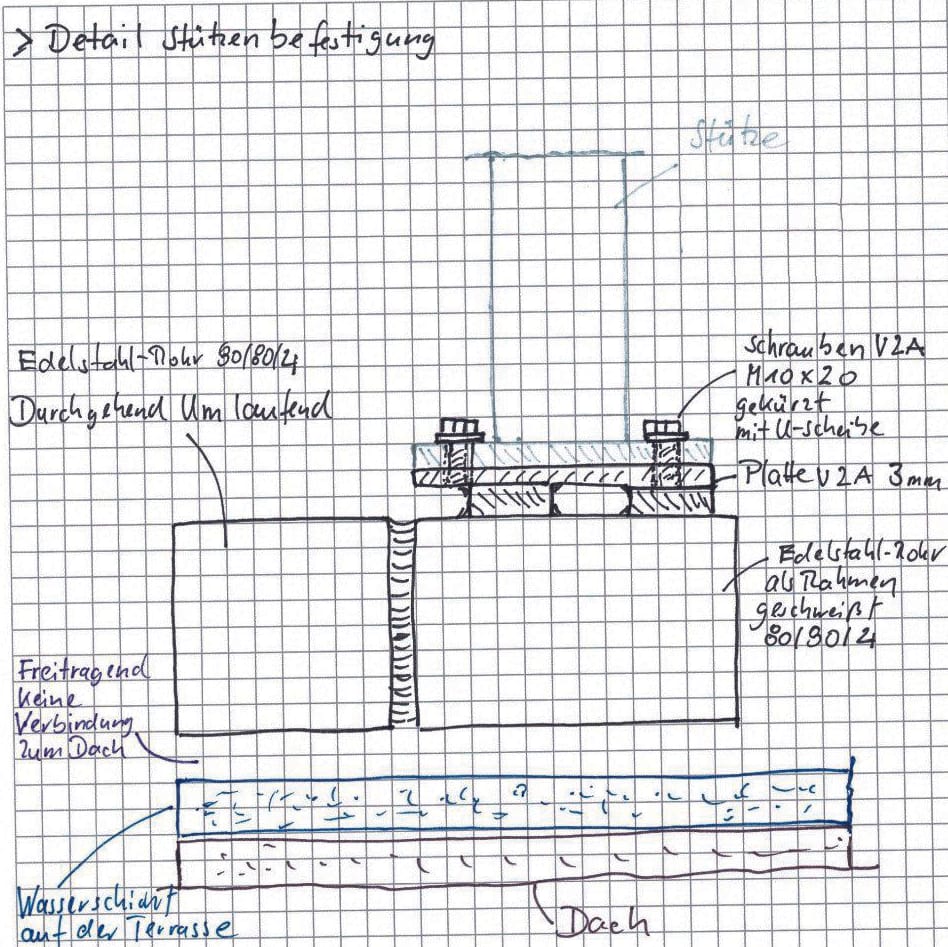 > Detail Stützenbefestigung
Stütze
Edelstahl-Rohr 80/80/4
Durchgehend Umlaufend
Schrauben V2A
M10x20
gekürzt
mit U-Scheibe
Platte V2A 3mm
Edelstahl-Rohr
als Rahmen
geschweißt
80/80/4
Freitragend
Keine
Verbindung
zum Dach
Wasserschicht
auf der Terrasse
Dach